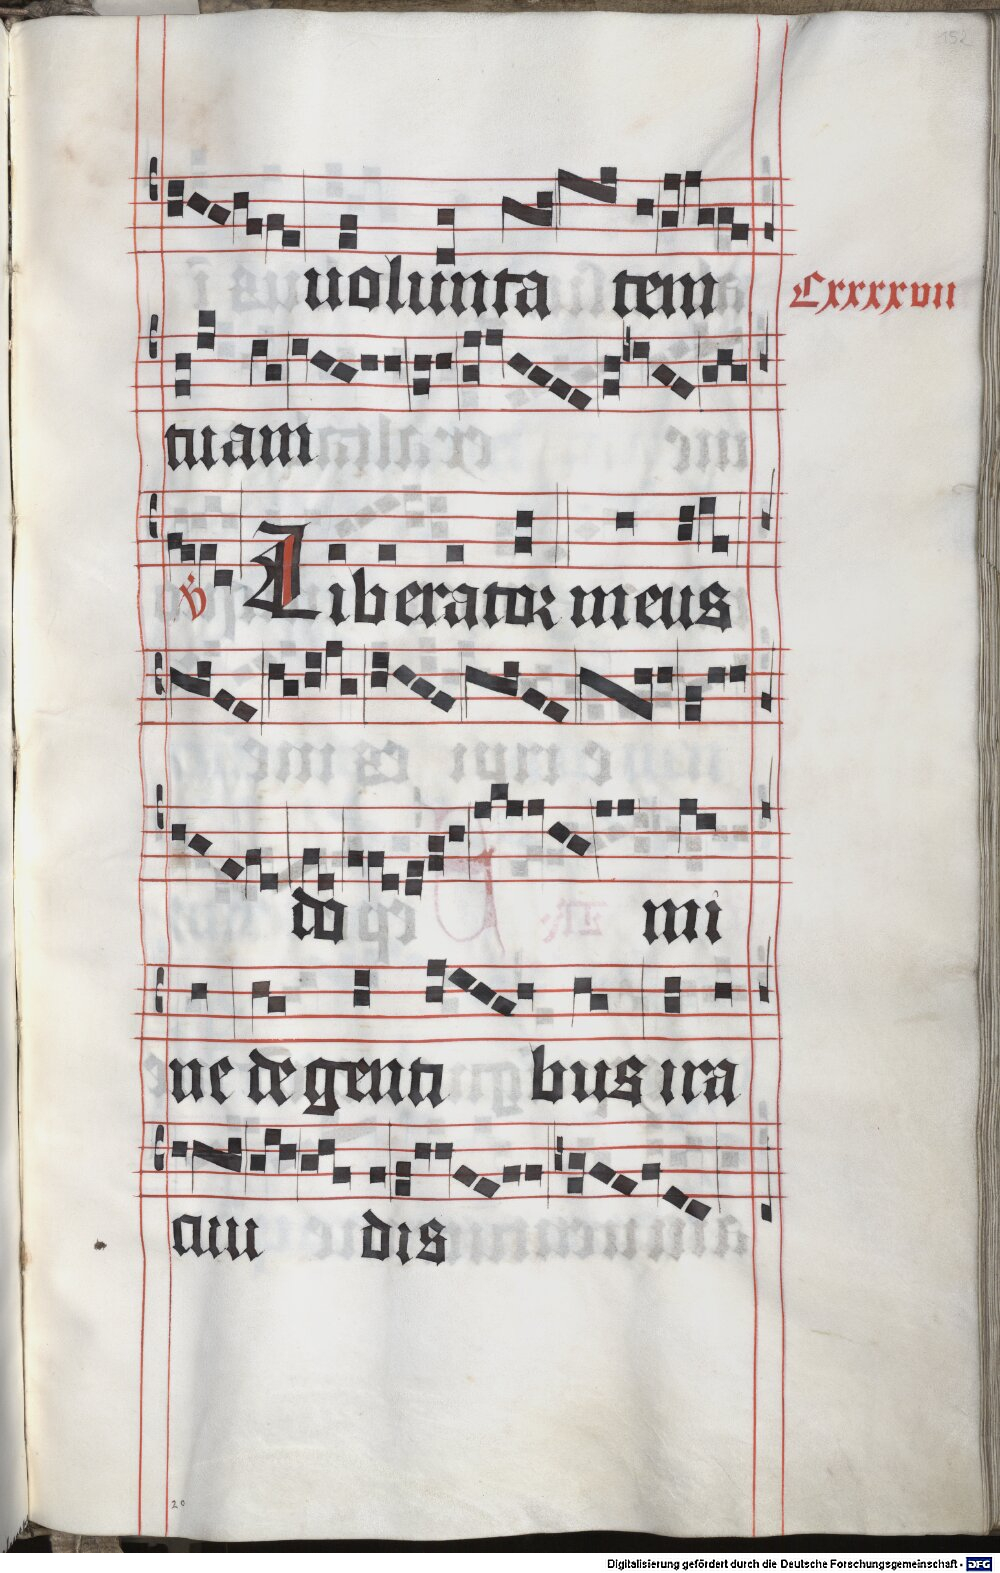 152
uolunta tem
Cxxxxvii
tuam
℣ Liberator meus
do mi
ne de genti bus ira
cun dis
20
Digitalisierung gefördert durch die Deutsche Forschungsgemeinschaft - DFG